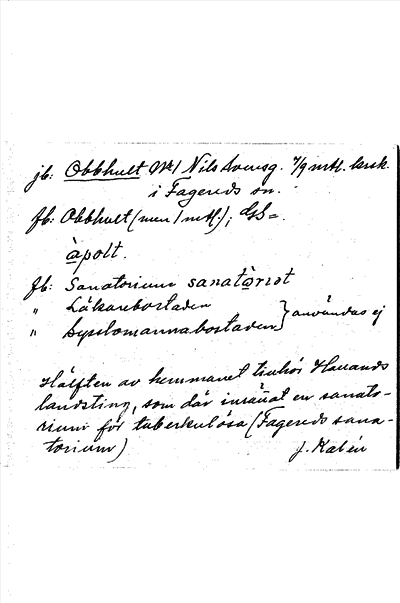 jb: Obbhult Nr 1 Nils Svensg. 7/9 mtl. krsk.
i Fagereds sn.
fb: Obbhult (men 1 mtl.); GS =.
àpolt.
fb: Sanatorium sanatòriət
" Läkarebostaden
" Sysslomannabostaden } användas ej
Hälften av hemmanet tillhör Hallands
landsting, som där inrättat en sanato-
rium för tuberkulösa (Fagereds sana-
torium)
J. Kalén